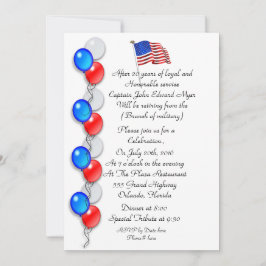 After 20 years of loyal and
Honorable service
Captain John Edward Myer
Will be retiring from the
( Branch of military)
Please join us for a
Celebration,
On, July 20th, 2016
At 7 o'clock in the evening
At The Plaza Restaurant
555 Grand Highway
Orlando, Florida
Dinner at 8:00
Special Tribute at 9:30
RSVP by Date here
Phone# here